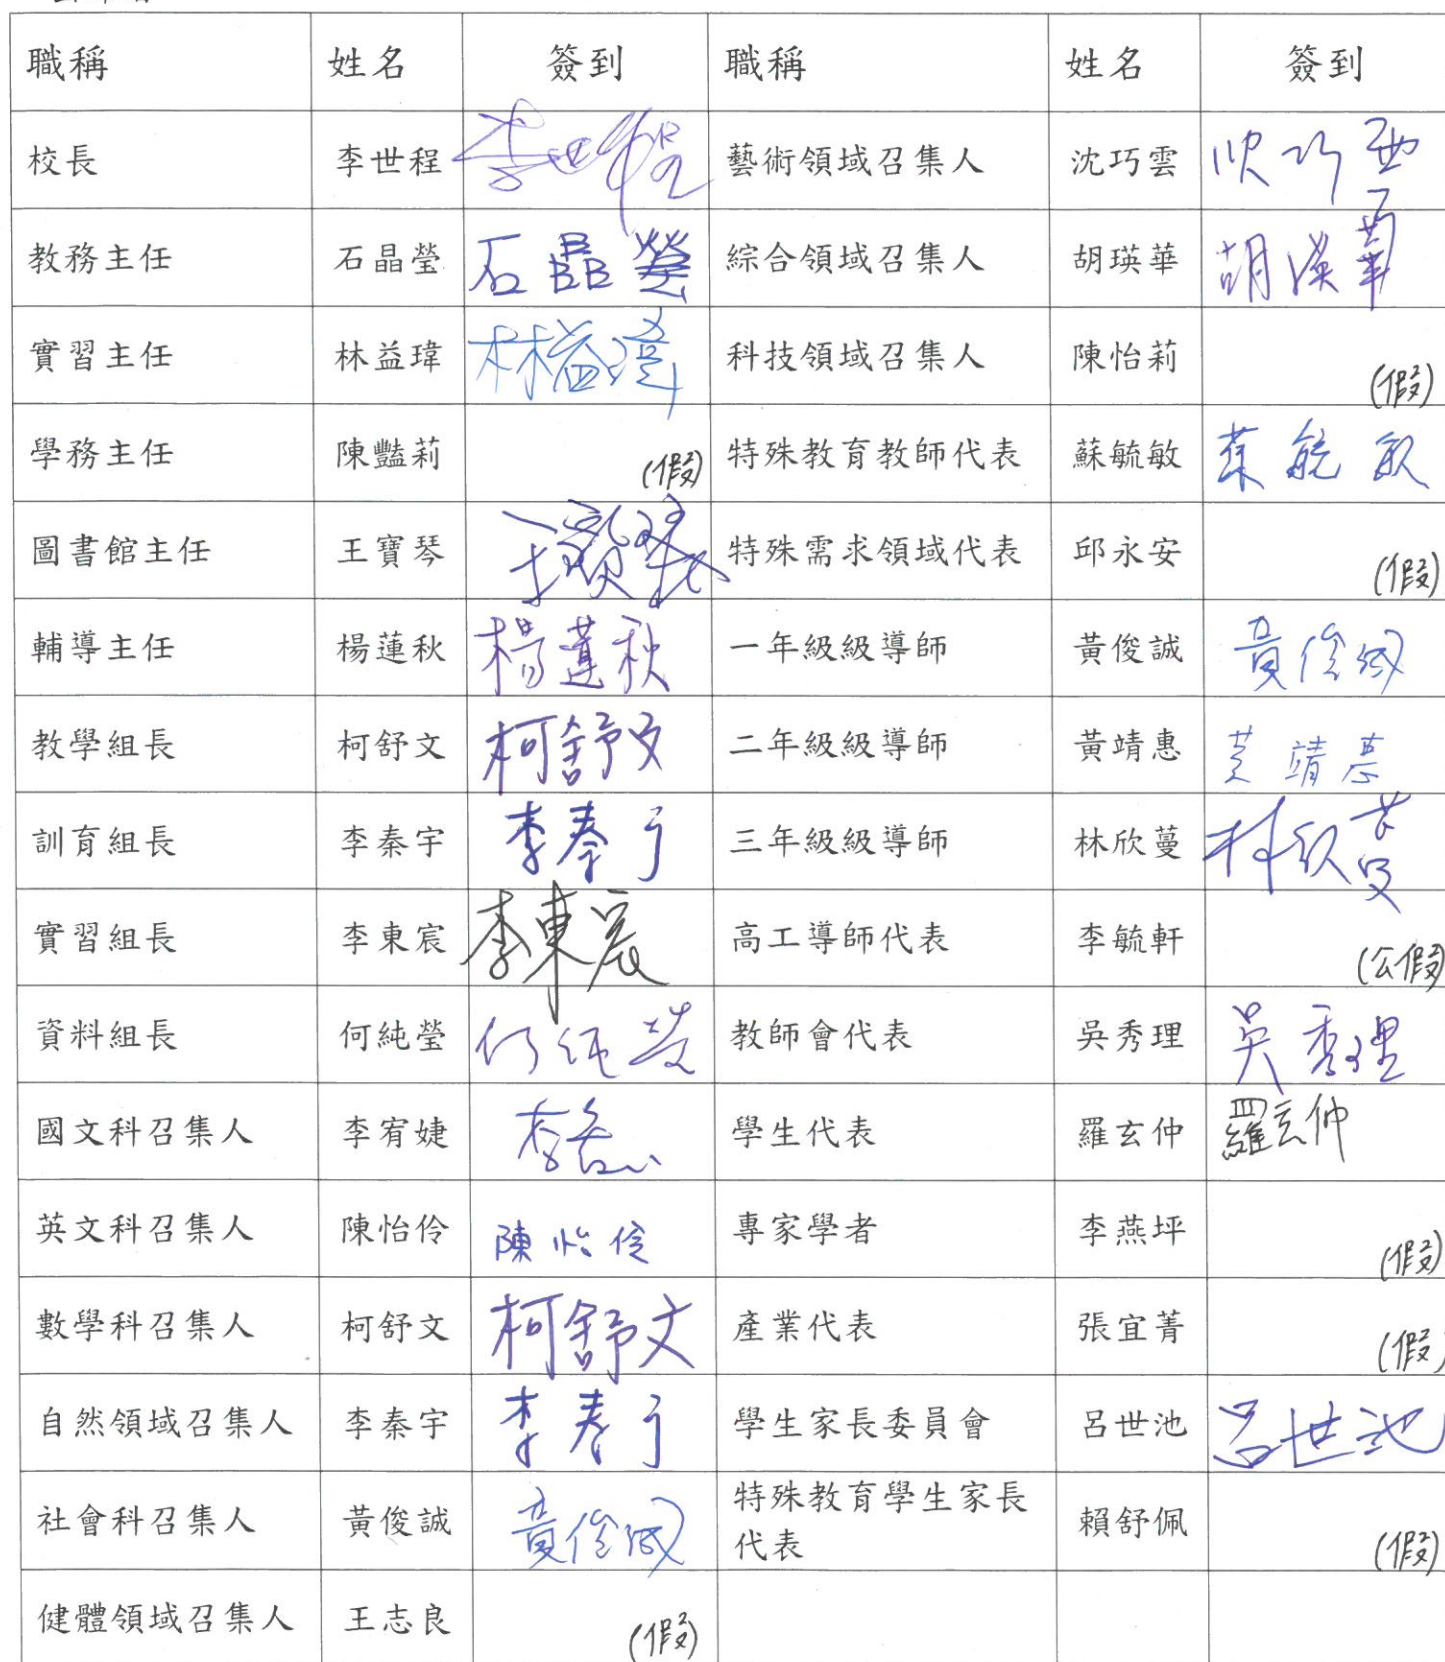 職稱 姓名 簽到 職稱 姓名 簽到
校長 李世程 李世程 藝術領域召集人 沈巧雲 沈巧雲
教務主任 石晶瑩 石晶瑩 綜合領域召集人 胡瑛華 胡瑛華
實習主任 林益瑋 林益瑋 科技領域召集人 陳怡莉 (假)
學務主任 陳豔莉 (假) 特殊教育教師代表 蘇毓敏 蘇毓敏
圖書館主任 王寶琴 王寶琴 特殊需求領域代表 邱永安 (假)
輔導主任 楊蓮秋 楊蓮秋 一年級級導師 黃俊誠 黃俊誠
教學組長 柯舒文 柯舒文 二年級級導師 黃靖惠 黃靖惠
訓育組長 李秦宇 李秦宇 三年級級導師 林欣蔓 林欣蔓
實習組長 李東宸 李東宸 高工導師代表 李毓軒 (公假)
資料組長 何純瑩 何純瑩 教師會代表 吳秀理 吳秀理
國文科召集人 李宥婕 學生代表 羅玄仲 羅玄仲
英文科召集人 陳怡伶 陳怡伶 專家學者 李燕坪 (假)
數學科召集人 柯舒文 柯舒文 產業代表 張宜菁 (假)
自然領域召集人 李秦宇 李秦宇 學生家長委員會 呂世池 呂世池
社會科召集人 黃俊誠 黃俊誠 特殊教育學生家長
代表 賴舒佩 (假)
健體領域召集人 王志良 (假)